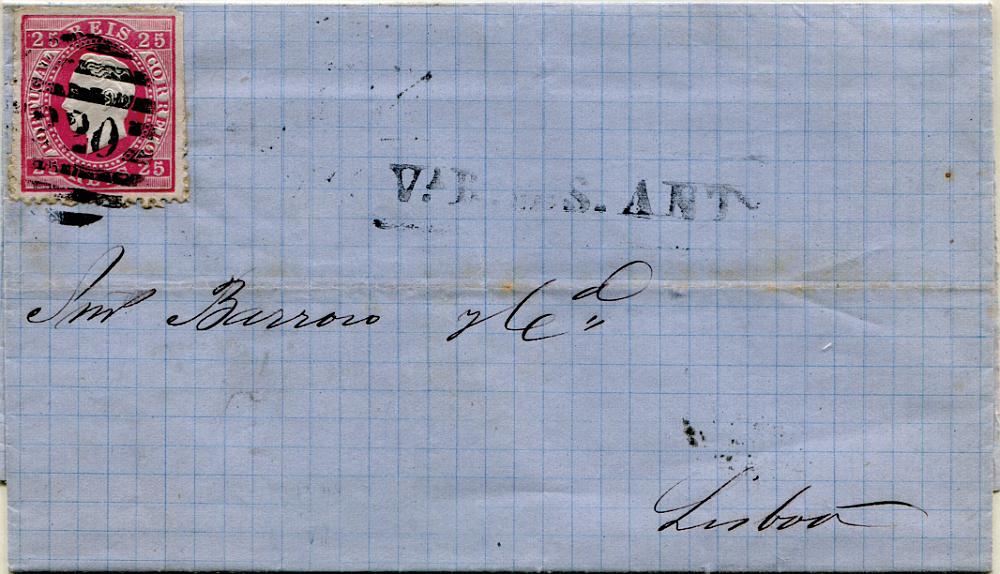 25 REIS 25
PORTUGAL CORREIO
25 REIS 25
S. ANT
Barroso y C.ª
Lisboa